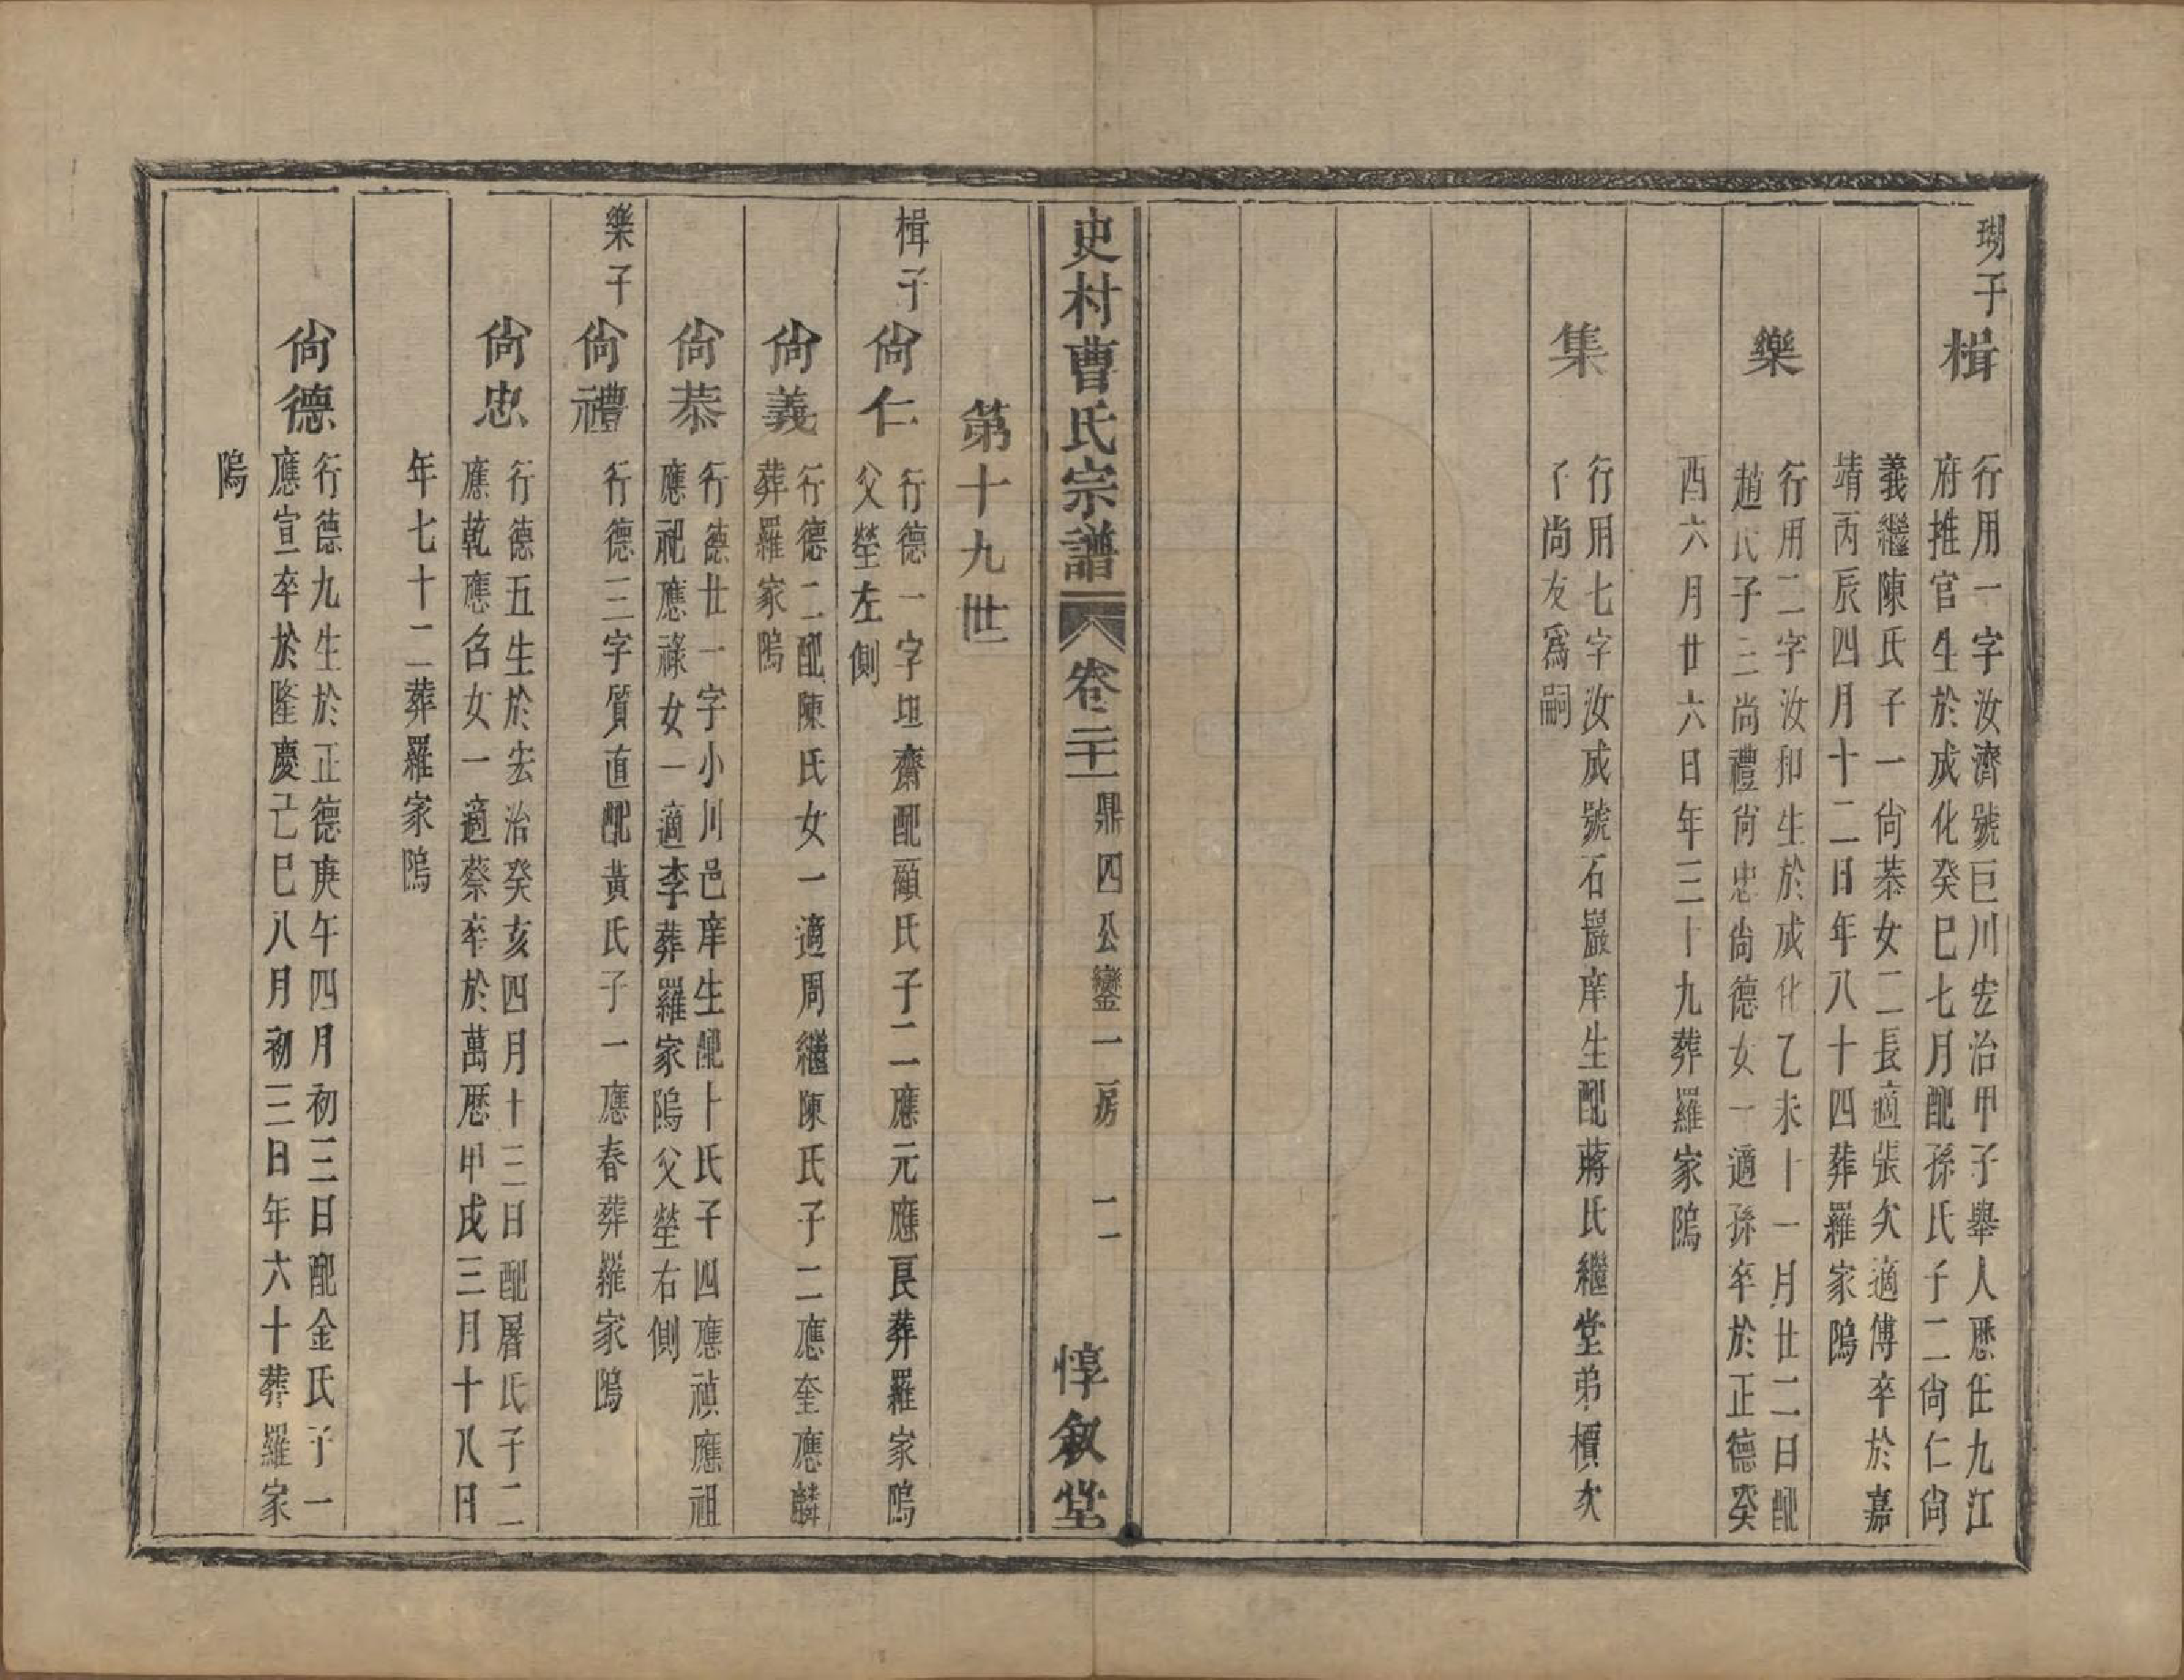 瑒子
楫
行用一字汝濟號巨川宏治甲子舉人歷任九江
府推官生於成化癸巳七月配孫氏子二尙仁尙
義繼陳氏子一尙恭女二長適張次適傅卒於嘉
靖丙辰四月十二日年八十四葬羅家隖
樂
行用二字汝和生於成化乙未十一月廿二日配
趙氏子三尚禮尙忠尙德女一適孫卒於正德癸
酉六月廿六日年三十九葬羅家隖
集
行用七字汝成號石巖庠生配蔣氏繼堂弟檟次
子尚友爲嗣
史村曹氏宗譜
卷二十一
鼎四公鑾一房
二
惇敘堂
第十九世
楫子
尙仁
行德一字坦齋配顧氏子二應元應艮葬羅家隖
父塋左側
尙義
行德二配陳氏女一適周繼陳氏子二應奎應麟
葬羅家隖
尙恭
行德廿一字小川邑庠生配卜氏子四應禎應祖
應祀應祿女一適李葬羅家隖父塋右側
樂子
尙禮
行德三字質直配黃氏子一應春葬羅家隖
尙忠
行德五生於宏治癸亥四月十三日配屠氏子二
應乾應名女一適蔡卒於萬歷甲戌三月十八日
年七十二葬羅家隖
尙德
行德九生於正德庚午四月初三日配金氏子一
應宣卒於隆慶己巳八月初三日年六十葬羅家
隖